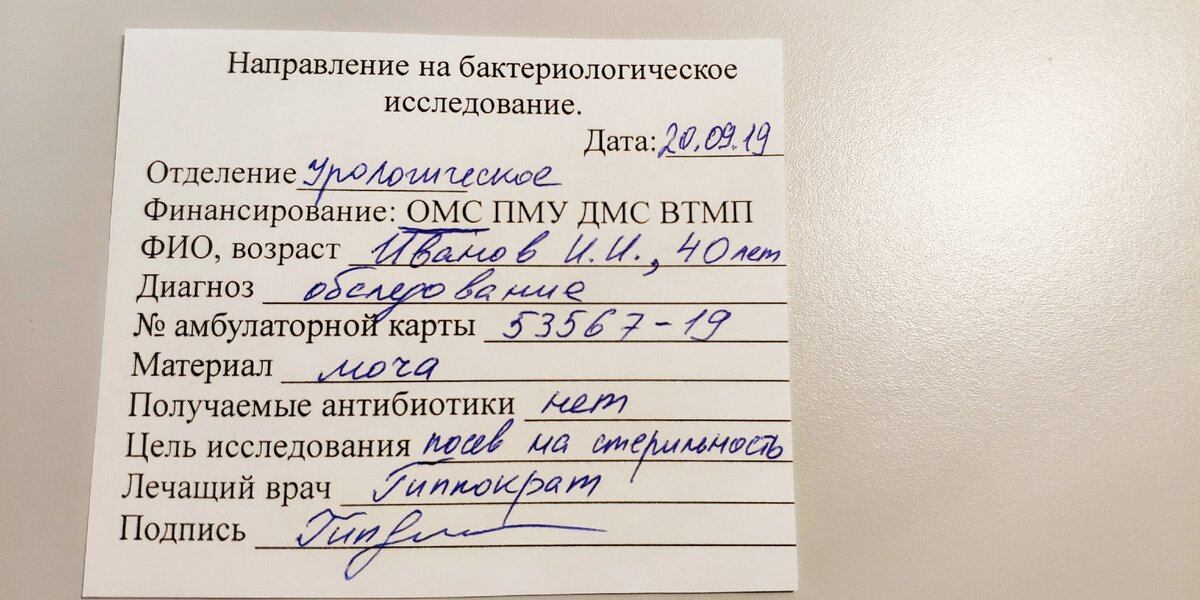 Направление на бактериологическое
исследование.
Дата: 20.09.19
Отделение Урологическое
Финансирование: ОМС ПМУ ДМС ВТМП
ФИО, возраст Иванов И.И., 40 лет
Диагноз обследование
№ амбулаторной карты 53567-19
Материал моча
Получаемые антибиотики нет
Цель исследования посев на стерильность
Лечащий врач Гиппократ
Подпись